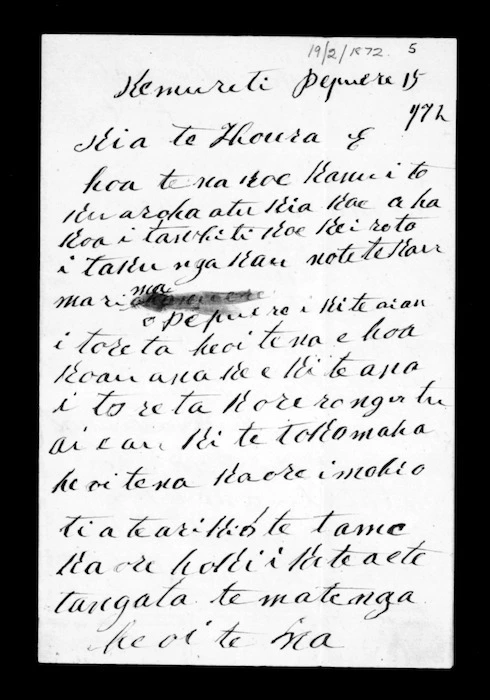 19/2/1872. 5
Kemureti Pepuere 15
72
Kia te Houra E
hoa tena koe kanui to
ku aroha atu kia koe aha
koa i tawhiti koe kei roto
i taku ngakau note te kau
ma
mari
o Pepuere i kite ai au
i to reta heoi tena e hoa
Koau ana ke e kite ana
i to reta kore rongo tu
ai e au ki te tokomaha
heoi tena kaore i mohio
tia te ariki o te tame
kaore hoki i kitea e te
tangata te matenga
heoi te na